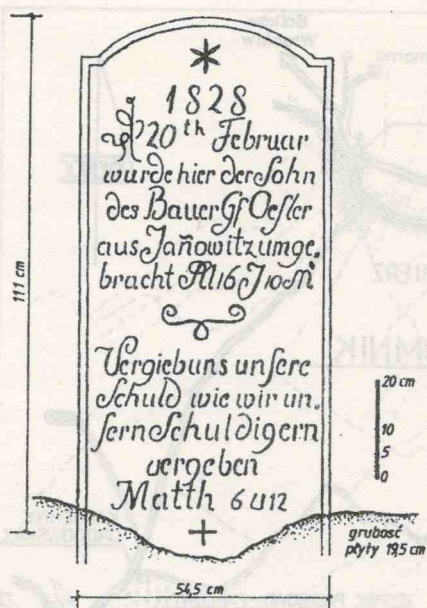 1828
d 20th Februar
wurde hier der Sohn
des Bauer Gf Oeſler
aus Jañowitz umge.
bracht Al 16 J 10 M
Vergieb uns unſere
Schuld wie wir un.
ſern Schuldigern
vergeben
Matth 6 u 12
111 cm
20 cm
10
5
0
grubość
płyty 19,5 cm
54,5 cm